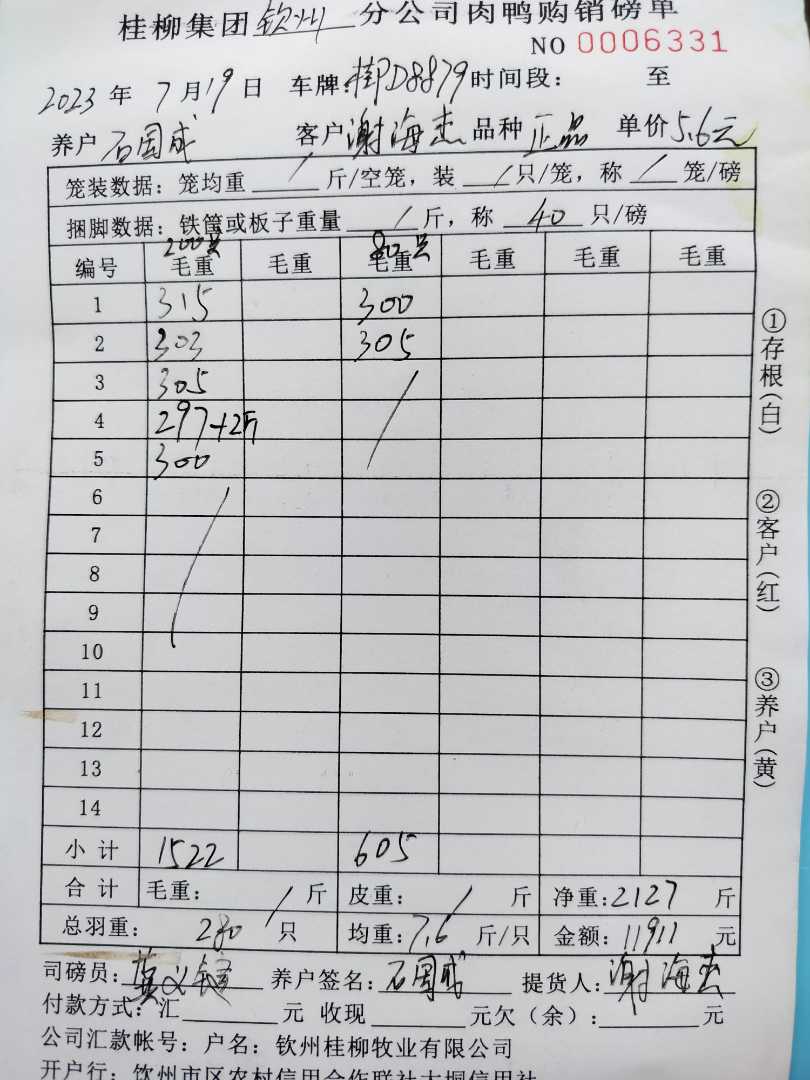 桂柳集团钦州分公司肉鸭购销磅单
NO 0006331
2023年7月19日 车牌:桂PD8879 时间段: 至
养户 石国成 客户 谢海杰 品种 正品 单价5.6元
笼装数据:笼均重 / 斤/空笼,装 / 只/笼,称 / 笼/磅
捆脚数据:铁筐或板子重量 / 斤,称 40 只/磅
200只 80只
编号 毛重 毛重 毛重 毛重 毛重 毛重
1 315 300
2 303 305
3 305 /
4 297+2斤
5 300
6 /
7
8
9
10
11
12
13
14
小计 1522 605
合计 毛重: / 斤 皮重: / 斤 净重:2127 斤
总羽重: 280 只 均重:7.6 斤/只 金额:11911 元
司磅员: 养户签名:石国成 提货人:谢海杰
付款方式:汇 元 收现 元欠(余): 元
公司汇款帐号:户名:钦州桂柳牧业有限公司
开户行:钦州市区农村信用合作联社大垌信用社
①存根(白)
②客户(红)
③养户(黄)